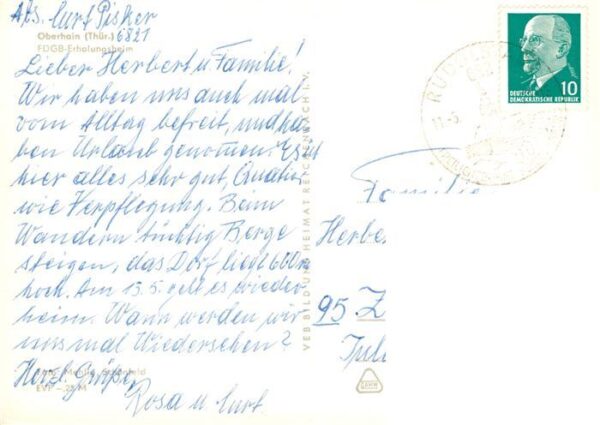 Abs. Curt Pisker
6821
Oberhain (Thür.)
FDGB-Erholungsheim
Lieber Herbert u. Familie!
Wir haben uns auch mal
vom Alltag befreit, und ha
ben Urlaub genomen. Es ist
hier alles sehr gut, Quatier
wie Verpflegung. Beim
Wandern tüchtig Berge
steigen, das Dorf liegt
hoch. Am 15.5. geht es wieder
heim. Wann werden wir
uns mal Wiedersehen?
Herzl. Grüße
Rosa u. Curt.
EVP
VEB BILD UND HEIMAT REICHENBACH I. V.
DEUTSCHE
DEMOKRATISCHE REPUBLIK
10
RUD
Familie
Herbe
95 Z